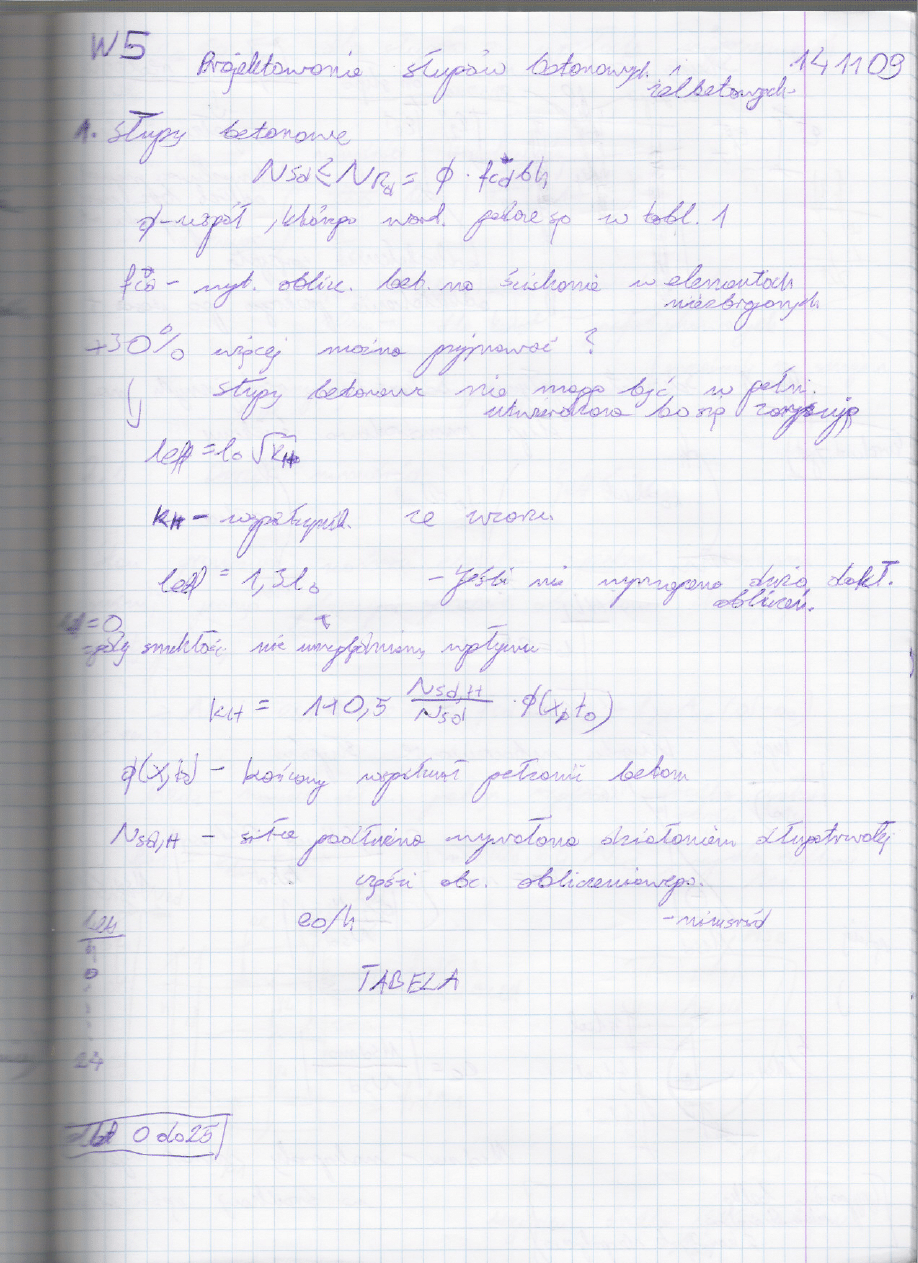 W5
Projektowanie słupów betonowych i 14 11 09
żelbetowych
1. słupy betonowe
NSd ≤ NRd = φ · fcd* bh
φ - współ, którego wart. podane są w tabl. 1
fcd* - wyt. oblicz. bet. na ściskanie w elementach
niezbrojonych
+30% więcej można przyjmować ?
słupy betonowe nie mogą być w pełni.
utwierdzone bo się zarysują
leff = lo √kH
kH - współczynik. ze wzoru
leff = 1,3 lo - Jeśli nie wymagana duża dokł.
obliczeń.
=0
smukłość nie uwzględniamy wpływu
kH = 1+0,5 NSd,H/NSd · φ(∞,to)
φ(∞,to) - końcowy współczynt pełzania betonu
NSd,H - siła podłużna wywołana działaniem długotrwałej
części obc. obliczeniowego.
eo/h - mimośród
0
TABELA
24
0 do 25